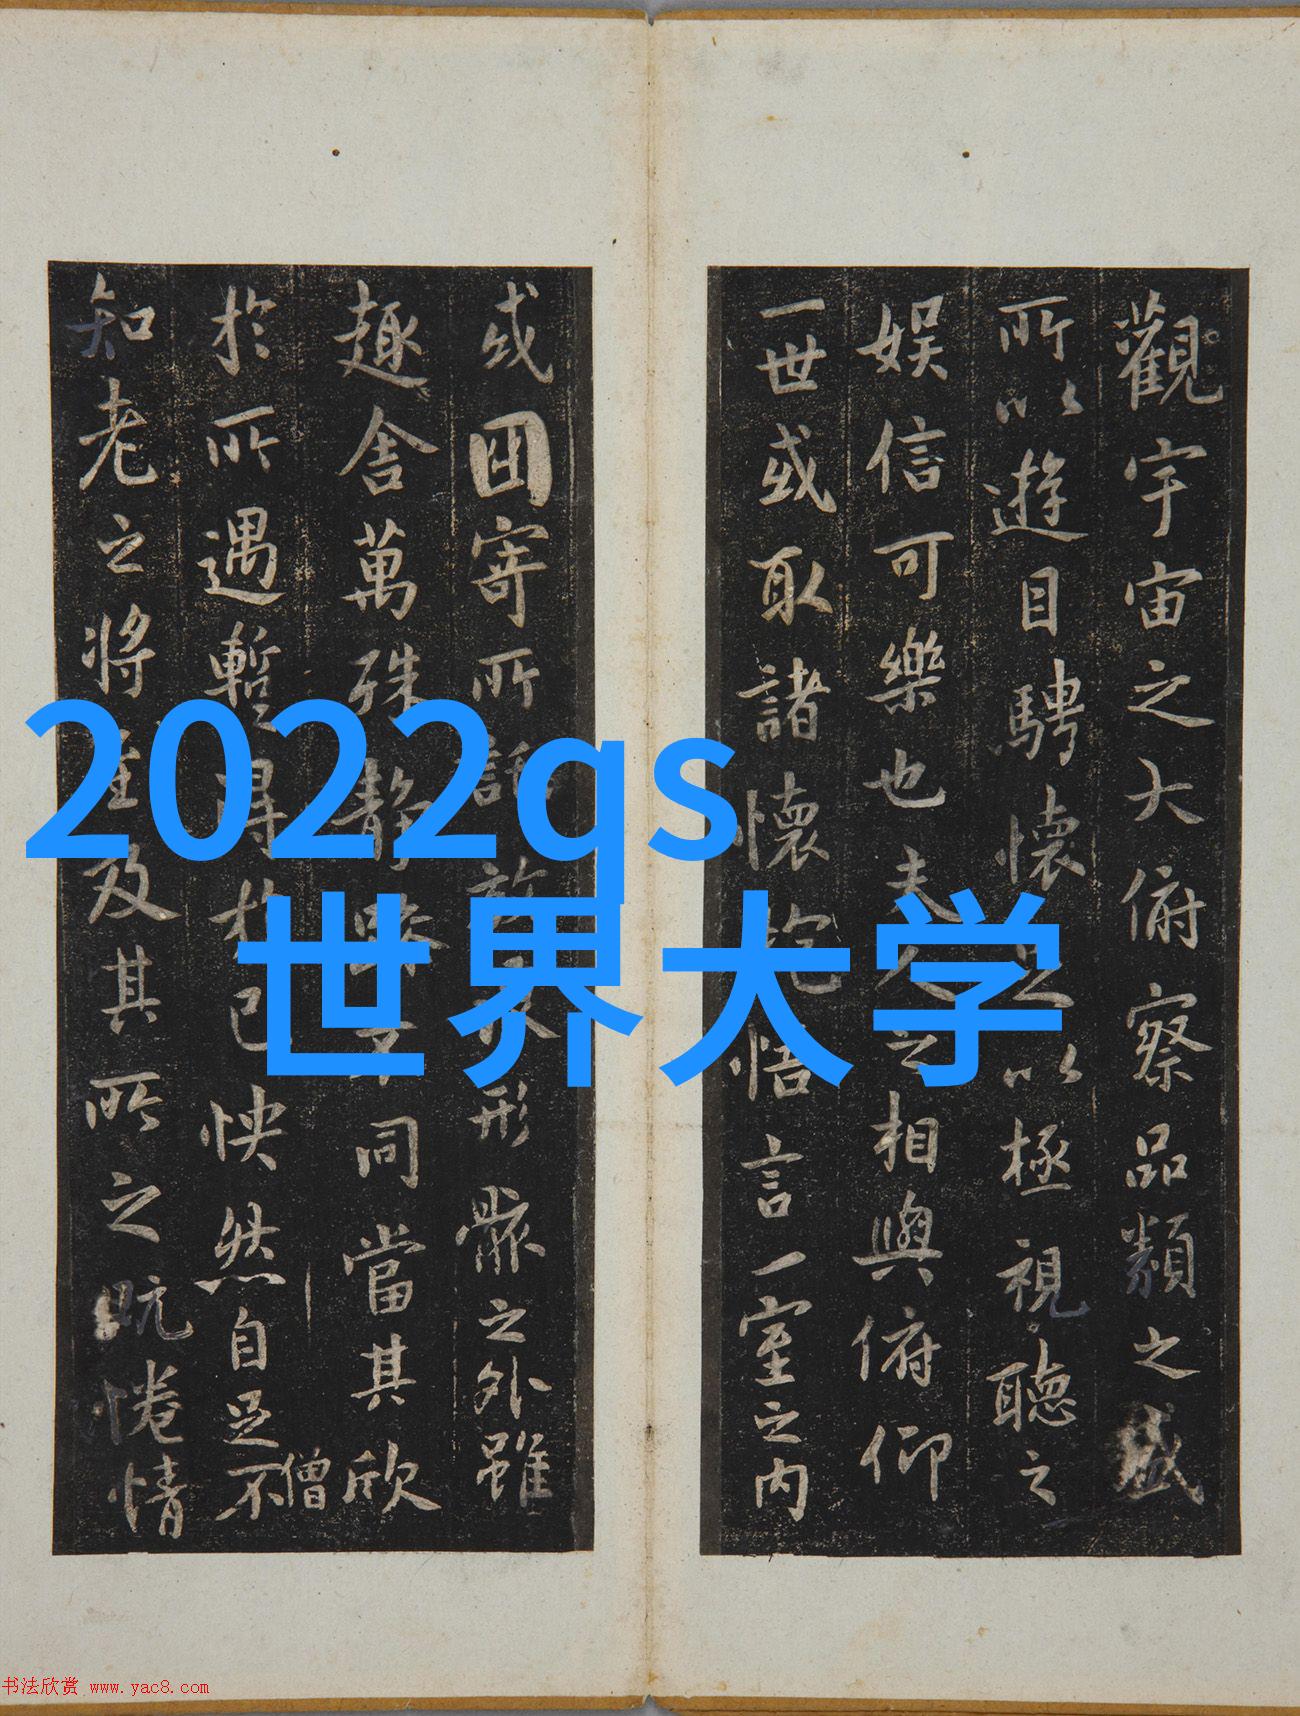 觀宇宙之大俯察品類之盛
所以遊目騁懷足以極視聽之
娛信可樂也夫人之相與俯仰
一世或取諸懷抱悟言一室之内
或因寄所託放浪形骸之外雖
趣舍萬殊静躁不同當其欣
僧
於所遇暫得於己怏然自足不
知老之將至及其所之既惓情
2022qs
世界大学
书法欣赏 www.yac8.com